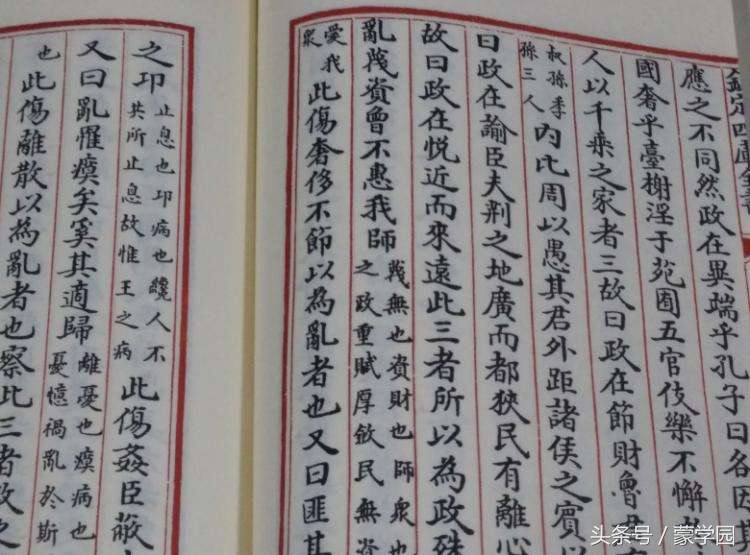 欽定四庫全書
應之不同然政在異端乎孔子曰各因
國奢乎臺榭淫于苑囿五官伎樂不懈
人以千乘之家者三故曰政在節財魯
叔孫季
孫三人
內比周以愚其君外距諸侯之賓
曰政在諭臣夫荆之地廣而都狹民有離心
故曰政在悅近而來遠此三者所以為政殊
亂蔑資曾不惠我師
蔑無也資財也師衆也
之政重賦厚斂民無資
愛我
衆
此傷奢侈不節以為亂者也又曰匪其
之邛
止息也邛病也讒人不
共所止息故惟王之病
此傷姦臣蔽
又曰亂瘼矣奚其適歸
離憂也瘼病也
憂憶禍亂於斯
也
此傷離散以為亂者也察此三者政之
头条号 / 蒙学园